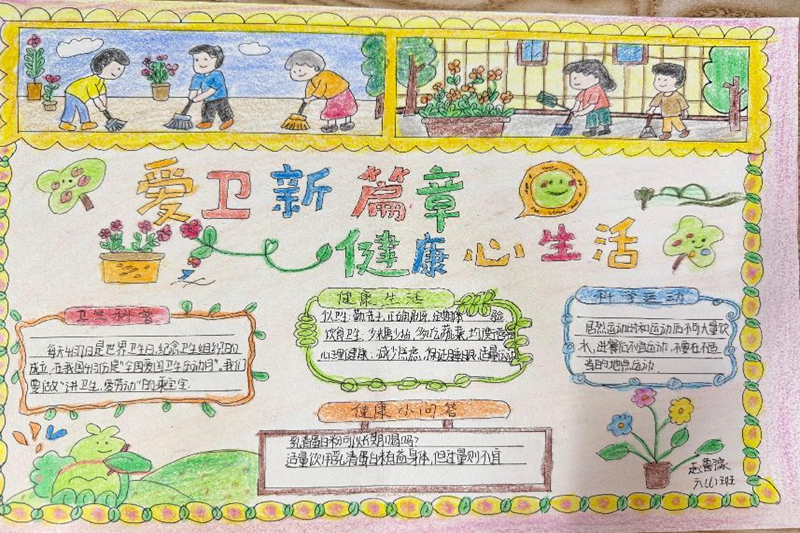 爱卫新篇章
健康心生活
卫生科普
每天4月7日是世界卫生日,纪念卫生组织的
成立,在我国4月为是"全国爱国卫生运动月",我们
要做"讲卫生、爱劳动"的乖宝宝
健康生活
饮食卫生,少糖少油,多吃蔬菜,均衡营养
心理健康,减少焦虑,保证睡眠,适量运动
科学运动
居然运动时和运动后不可大量饮
水,进餐后不宜运动,不要在不适
当的地点运动
健康小问答
乳清蛋白粉可以长期喝吗?
适量饮用乳清蛋白粉有益身体,但过量则不宜
六(4)班